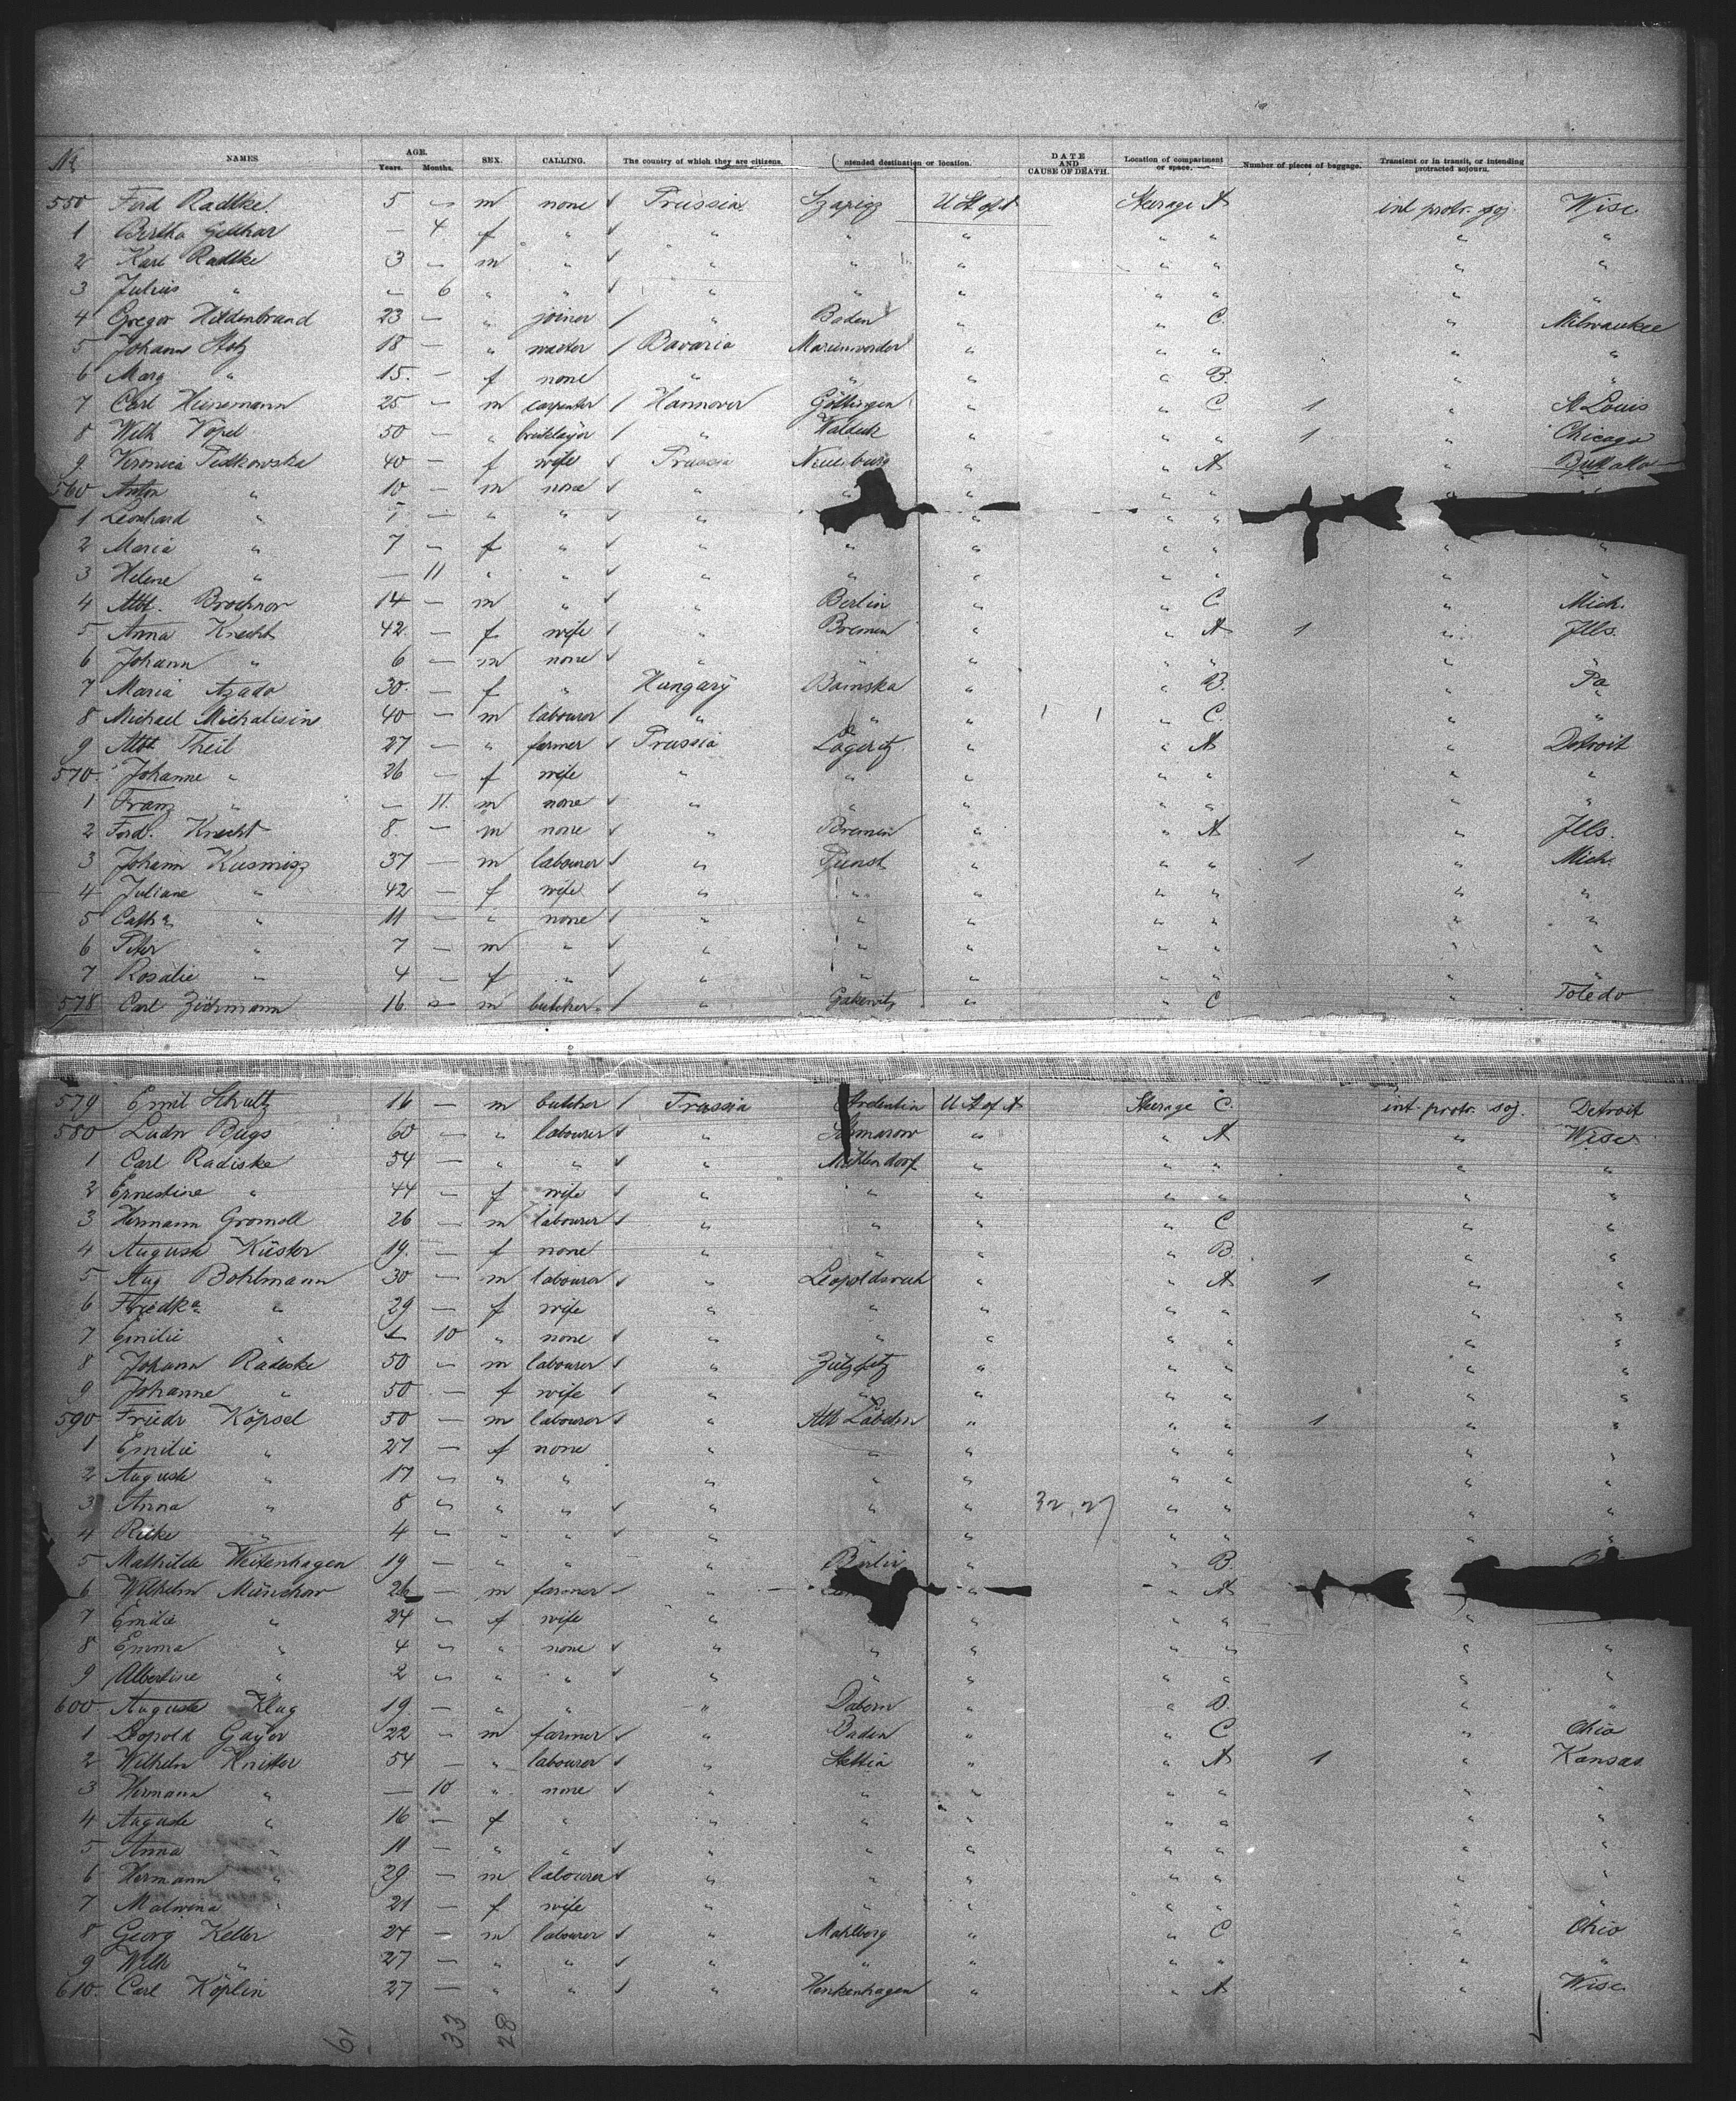 No. NAMES. AGE. Years. Months. SEX. CALLING. The country of which they are citizens. Intended destination or location. DATE AND CAUSE OF DEATH. Location of compartment or space. Number of pieces of baggage. Transient or in transit, or intending protracted sojourn.
550 Ferd Radtke. 5 — m none Prussia U St of A Steerage A int protr. soj. Wisc.
1 Bertha — 4 f " " " " " " " "
2 Karl Radtke 3 — m " " " " " " " "
3 Julius " — 6 " " " " " " " " "
4 Gregor Hildenbrand 23 — " joiner " Baden " " C. " Milwaukee
5 Johann Stolz 18 — " waiter Bavaria Marienwerder " " " " "
6 Marg " 15. — f none " " " " B. " "
7 Carl Heinemann 25 — m carpenter Hannover Göttingen " " C 1 " St Louis
8 Wilh Vopel 50 — " bricklayer " Waldeck " " " 1 " Chicago
9 Veronica Petkowska 40 — f wife Prussia " " A " Buffalo
560 Anton " 10 — m none " " " " " "
1 Leonhard " — " " " " " "
2 Maria " 7 — f " " " " " " " "
3 Helene " — 11 " " " " " " " " "
4 Albt. Brochnow 14 — m " " Berlin " " C " Mich.
5 Anna Knecht 42. — f wife " Bremen " " A 1 " Ills.
6 Johann " 6 — m none " " " " " " "
7 Maria Azado 30. — f " Hungary Bainska " " B. " Pa
8 Michael Michalisin 40 — m labourer " " " " C. " "
9 Albt Theil 27 — " farmer Prussia " " A " Detroit
570. Johanne " 26 — f wife " " " " " " "
1 Franz " — 11. m none " " " " " " "
2 Ferd. Knecht 8. — m none " Bremen " " A " Ills.
3 Johann Kusmisz 37 — m labourer " " " " 1 " Mich.
4 Juliane " 42 — f wife " " " " " " "
5 Catha " 11 — " none " " " " " " "
6 Peter " 7 — m " " " " " " " "
7 Rosalie " 4 — f " " " " " " " "
578 Carl Zichmann 16. — m butcher " " " C " Toledo
579 Emil Schultz 16 — m butcher Prussia U St of A Steerage C. int protr. soj. Detroit
580 Ludw Bugs 60 — " labourer " " " A " Wisc
1 Carl Radiske 54 — " " " Mittendorf " " " " "
2 Ernestine " 44 — f wife " " " " " " "
3 Hermann Gromoll 26 — m labourer " " " " C " "
4 Auguste Küster 19. — f none " " " " B. " "
5 Aug Bohlmann 30 — m labourer " " " A 1 " "
6 Friedka " 29 — f wife " " " " " " "
7 Emilie " — 10 " none " " " " " " "
8 Johann Radeske 50 — m labourer " " " " " "
9 Johanne " 50 — f wife " " " " " " "
590 Friedr Köpsel 50 — m labourer " " " " 1 " "
1 Emilie " 27 — f none " " " " " " "
2 Auguste " 17 — " " " " " " " " "
3 Anna " 8 — " " " " " 32, 27 " " " "
4 Rieke " 4 — " " " " " " " " "
5 Mathilde Weitenhagen 19 — " " " Berlin " " B.
6 Wilhelm Münchow 26 — m farmer " " " A
7 Emilie " 24 — f wife " " " " "
8 Emma " 4 — " none " " " " " " "
9 Albertine " 2 — " " " " " " " " "
600 Auguste Klug 19. — " " " Dabern " " " "
1 Leopold Gayer 22 — m farmer " Baden " " C " Ohio
2 Wilhelm Knitter 54 — " labourer " Stettin " " A 1 " Kansas.
3 Hermann " — 10 " none " " " " " " "
4 Auguste " 16 — f " " " " " " " "
5 Anna " 11 — " " " " " " " " "
6 Hermann " 29. — m labourer " " " " " " "
7 Malwina " 21 — f wife " " " " " " "
8 Georg Keller 24 — m labourer " Mahlberg " " C " Ohio
9 Wilh " 27 — " " " " " " " " "
610. Carl Köplin 27 — " " " Henkenhagen " " A " Wisc
61 33 28